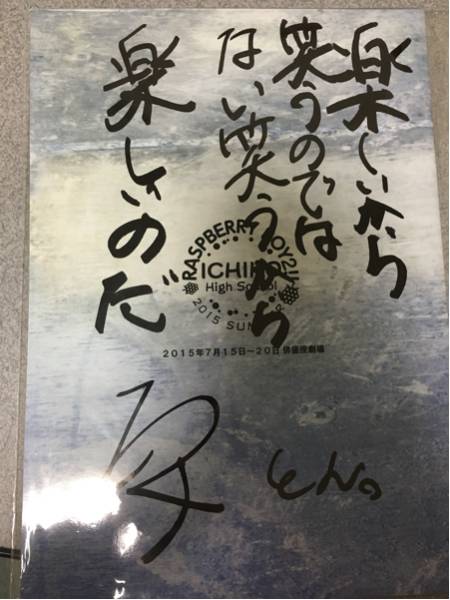 楽しいから
笑うのでは
ない笑うから
楽しいのだ
RASPBERRY BOY2!!
ICHIKO
High School
2015 SUMMER
2015年7月15日~20日 俳優座劇場